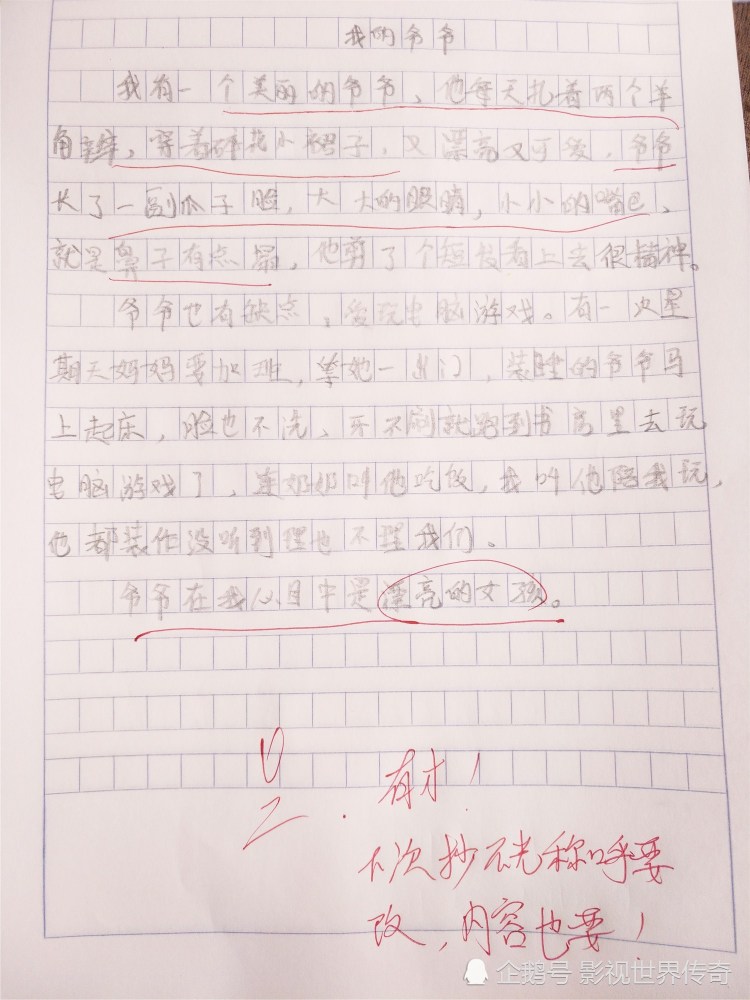 我的爷爷
我有一个美丽的爷爷、他每天扎着两个羊
角辫，穿着碎花小裙子，又漂亮又可爱，爷爷
长了一副瓜子脸，大大的眼睛，小小的嘴巴、
就是鼻子有点塌，他剪了个短发看上去很精神。
爷爷也有缺点，爱玩电脑游戏。有一次星
期天妈妈要加班，等她一出门，装睡的爷爷马
上起床，脸也不洗、牙不刷就跑到书房里去玩
电脑游戏了，连奶奶叫他吃饭，我叫他陪我玩，
他都装作没听到理也不理我们。
爷爷在我心目中是漂亮的女孩。
有才！
下次抄不光称呼要
改，内容也要！
企鹅号 影视世界传奇